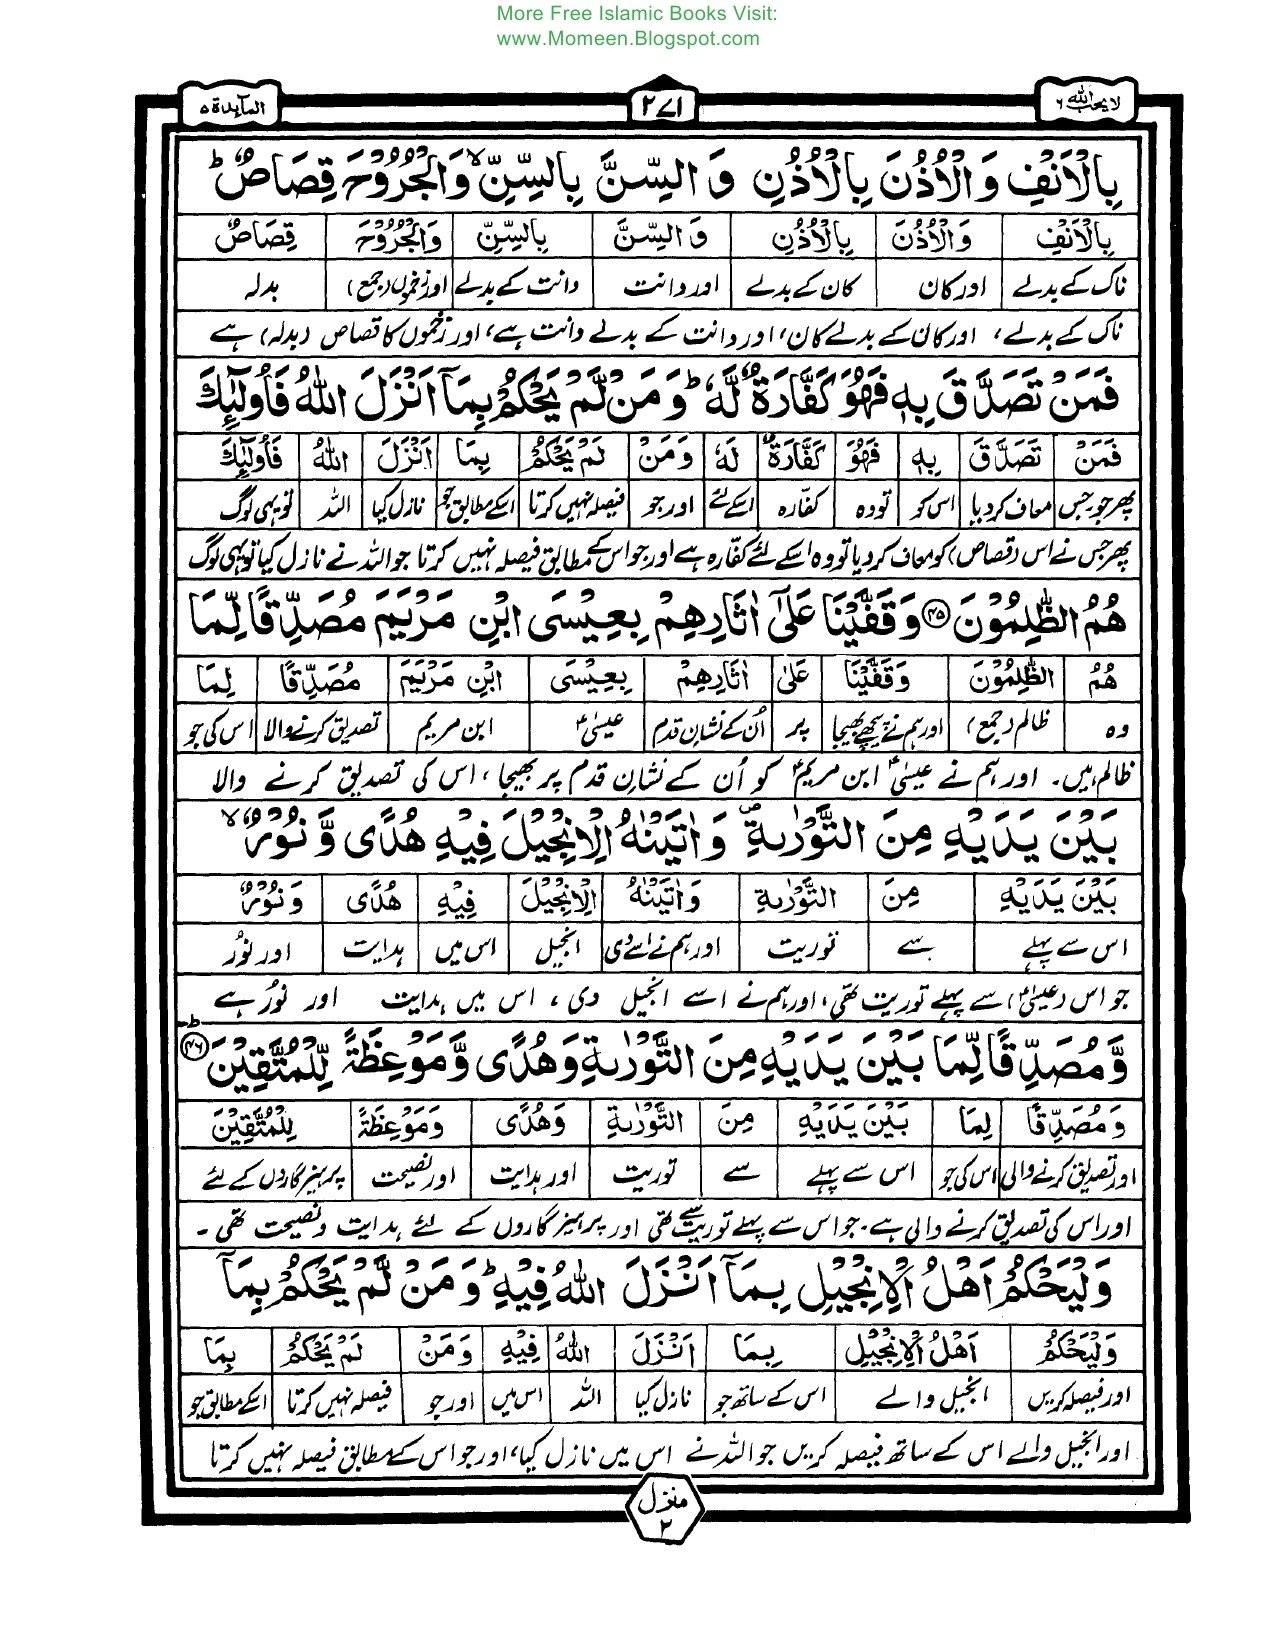 More Free Islamic Books Visit:
www.Momeen.Blogspot.com
لا یحب الله ٦ ٢٧١ المآىِٕدة ٥
بِالْاَنْفِ وَالْاُذُنَ بِالْاُذُنِ وَالسِّنَّ بِالسِّنِّ ۙ وَالْجُرُوْحَ قِصَاصٌ ؕ
بِالْاَنْفِ وَالْاُذُنَ بِالْاُذُنِ وَالسِّنَّ بِالسِّنِّ وَالْجُرُوْحَ قِصَاصٌ
ناک کے بدلے اور کان کان کے بدلے اور دانت دانت کے بدلے اور زخموں (جمع) بدلہ
ناک کے بدلے، اور کان کے بدلے کان، اور دانت کے بدلے دانت ہے، اور زخموں کا قصاص (بدلہ) ہے
فَمَنْ تَصَدَّقَ بِهٖ فَهُوَ كَفَّارَةٌ لَّهٗ ؕ وَمَنْ لَّمْ یَحْكُمْ بِمَاۤ اَنْزَلَ اللّٰهُ فَاُولٰٓىِٕكَ
فَمَنْ تَصَدَّقَ بِهٖ فَهُوَ كَفَّارَةٌ لَهٗ وَمَنْ لَمْ یَحْكُمْ بِمَا اَنْزَلَ اللّٰهُ فَاُولٰٓىِٕكَ
پھر جو جس معاف کردیا اس کو تو وہ کفّارہ اسکے لئے اور جو فیصلہ نہیں کرتا اسکے مطابق جو نازل کیا اللہ تو یہی لوگ
پھر جس نے اس (قصاص) کو معاف کر دیا تو وہ اسکے لئے کفّارہ ہے اور جو اس کے مطابق فیصلہ نہیں کرتا جو اللہ نے نازل کیا تو یہی لوگ
هُمُ الظّٰلِمُوْنَ ﴿۴۵﴾ وَقَفَّیْنَا عَلٰۤی اٰثَارِهِمْ بِعِیْسَی ابْنِ مَرْیَمَ مُصَدِّقًا لِّمَا
هُمُ الظّٰلِمُوْنَ وَقَفَّیْنَا عَلٰی اٰثَارِهِمْ بِعِیْسَی ابْنِ مَرْیَمَ مُصَدِّقًا لِمَا
وہ ظالم (جمع) اور ہم نے پیچھے بھیجا پر اُن کے نشانِ قدم عیسیٰؑ ابن مریم تصدیق کرنے والا اس کی جو
ظالم ہیں۔ اور ہم نے عیسیٰؑ ابن مریمؑ کو اُن کے نشانِ قدم پر بھیجا، اس کی تصدیق کرنے والا
بَیْنَ یَدَیْهِ مِنَ التَّوْرٰىةِ ۪ وَاٰتَیْنٰهُ الْاِنْجِیْلَ فِیْهِ هُدًی وَّنُوْرٌ ۙ
بَیْنَ یَدَیْهِ مِنَ التَّوْرٰىةِ وَاٰتَیْنٰهُ الْاِنْجِیْلَ فِیْهِ هُدًی وَنُوْرٌ
اس سے پہلے سے توریت اور ہم نے اسے دی انجیل اس میں ہدایت اور نُور
جو اس (عیسیٰؑ) سے پہلے توریت تھی، اور ہم نے اسے انجیل دی، اس میں ہدایت اور نُور ہے
وَّمُصَدِّقًا لِّمَا بَیْنَ یَدَیْهِ مِنَ التَّوْرٰىةِ وَهُدًی وَّمَوْعِظَةً لِّلْمُتَّقِیْنَ ؕ ﴿۴۶﴾
وَمُصَدِّقًا لِمَا بَیْنَ یَدَیْهِ مِنَ التَّوْرٰىةِ وَهُدًی وَمَوْعِظَةً لِلْمُتَّقِیْنَ
اور تصدیق کرنے والی اس کی جو اس سے پہلے سے توریت اور ہدایت اور نصیحت پرہیزگاروں کے لئے
اور اس کی تصدیق کرنے والی ہے۔ جو اس سے پہلے توریت سے تھی اور پرہیزگاروں کے لئے ہدایت و نصیحت تھی۔
وَلْیَحْكُمْ اَهْلُ الْاِنْجِیْلِ بِمَاۤ اَنْزَلَ اللّٰهُ فِیْهِ ؕ وَمَنْ لَّمْ یَحْكُمْ بِمَاۤ
وَلْیَحْكُمْ اَهْلُ الْاِنْجِیْلِ بِمَا اَنْزَلَ اللّٰهُ فِیْهِ وَمَنْ لَمْ یَحْكُمْ بِمَا
اور فیصلہ کریں انجیل والے اس کے ساتھ جو نازل کیا اللہ اس میں اور جو فیصلہ نہیں کرتا اسکے مطابق جو
اور انجیل والے اس کے ساتھ فیصلہ کریں جو اللہ نے اس میں نازل کیا، اور جو اس کے مطابق فیصلہ نہیں کرتا
منزل ٢